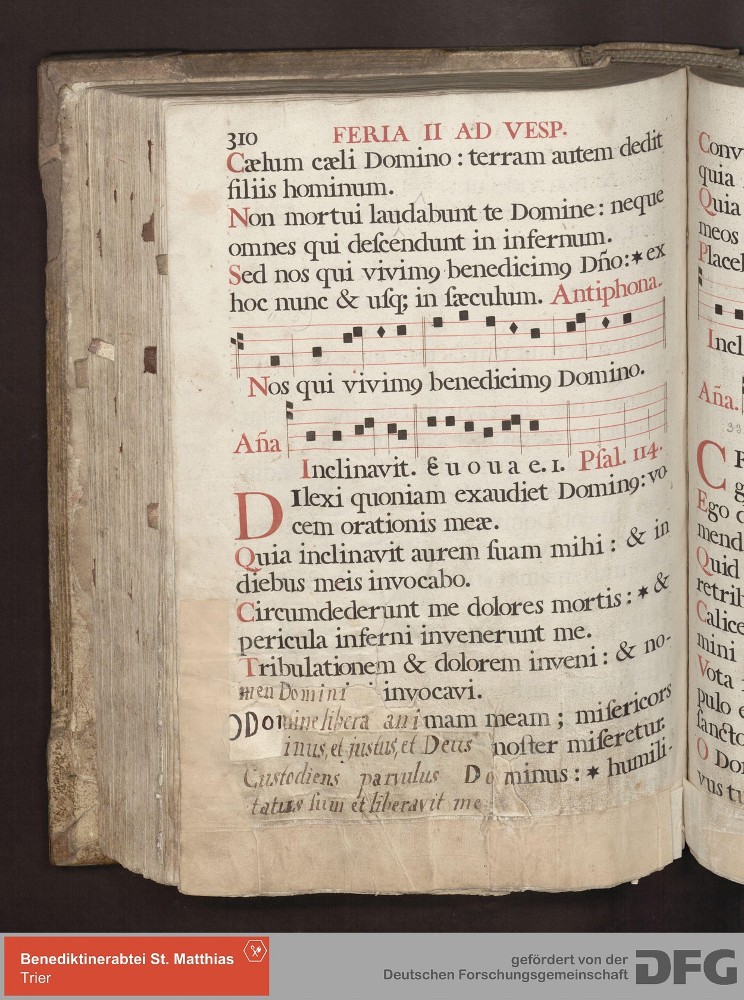 310 FERIA II AD VESP.
Cælum cæli Domino : terram autem dedit
filiis hominum.
Non mortui laudabunt te Domine : neque
omnes qui deſcendunt in infernum.
Sed nos qui vivimꝯ benedicimꝯ Dño:✶ ex
hoc nunc & uſqꝫ in ſæculum. Antiphona.
Nos qui vivimꝯ benedicimꝯ Domino.
Aña
Inclinavit. E u o u a e. 1. Pſal. 114.
DIlexi quoniam exaudiet Dominꝯ: vo
cem orationis meæ.
Quia inclinavit aurem ſuam mihi : & in
diebus meis invocabo.
Circumdederunt me dolores mortis : ✶ &
pericula inferni invenerunt me.
Tribulationem & dolorem inveni : & no-
men Domini invocavi.
O Domine libera animam meam ; miſericors
inus, et justus, et Deus noſter miſeretur.
Custodiens parvulus Dominus : ✶ humili-
tatus ſum et liberavit me
Conv
quia
Quia
meos
Placeb
Incl
Aña.
33
C
g
Ego
mend
Quid
retrib
Calice
mini
Vota
pulo
ſancto
O Dor
vus tu
Benediktinerabtei St. Matthias
Trier
gefördert von der
Deutschen Forschungsgemeinschaft
DFG